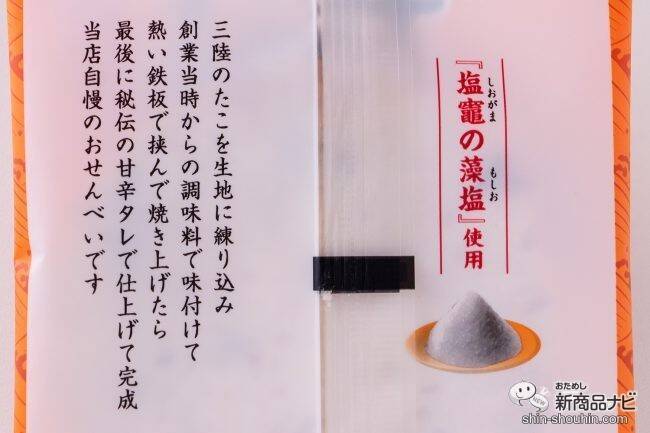 『塩竈の藻塩』使用
しおがま
もしお
三陸のたこを生地に練り込み
創業当時からの調味料で味付けて
熱い鉄板で挟んで焼き上げたら
最後に秘伝の甘辛タレで仕上げて完成
当店自慢のおせんべいです
おためし
新商品ナビ
NEW
shin-shouhin.com